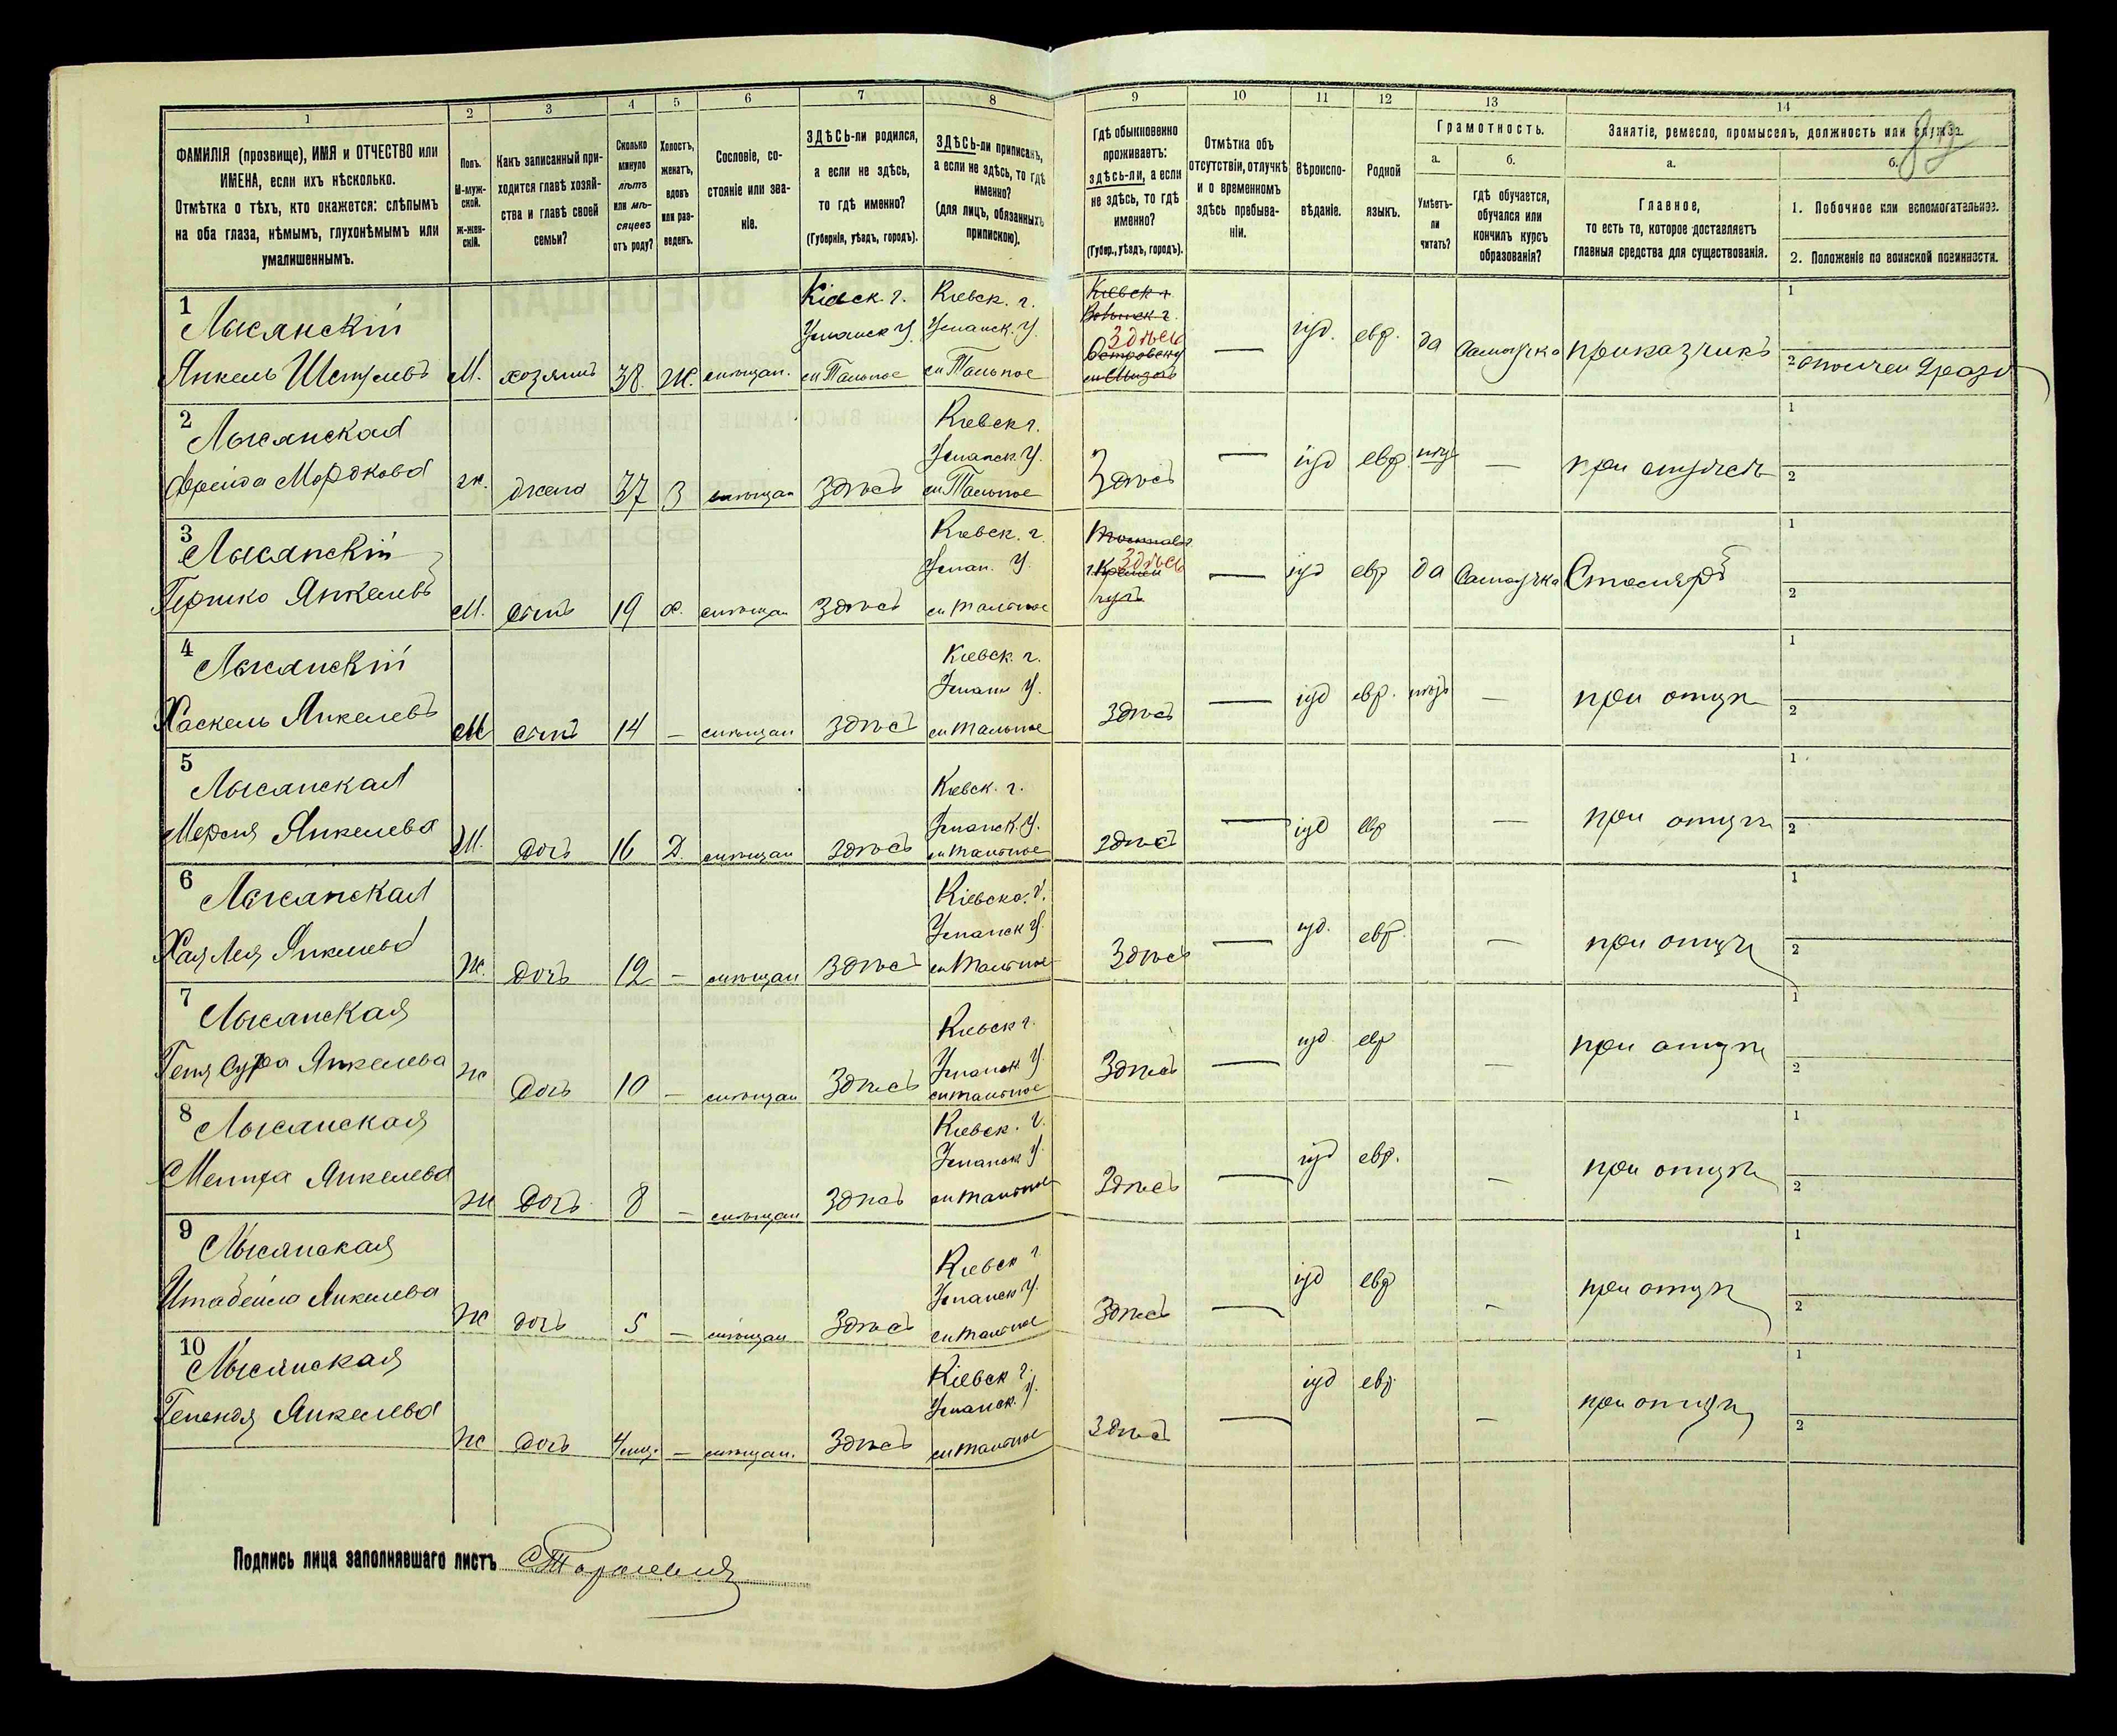 1 2 3 4 5 6 7 8 9 10 11 12 13 14
ФАМИЛІЯ (прозвище), ИМЯ и ОТЧЕСТВО или
ИМЕНА, если ихъ нѣсколько.
Отмѣтка о тѣхъ, кто окажется: слѣпымъ
на оба глаза, нѣмымъ, глухонѣмымъ или
умалишеннымъ.
Полъ.
М-муж-
ской.
ж-жен-
скій.
Какъ записанный при-
ходится главѣ хозяй-
ства и главѣ своей
семьи?
Сколько
минуло
лѣтъ
или мѣ-
сяцевъ
отъ роду?
Холостъ,
женатъ,
вдовъ
или раз-
веденъ.
Сословіе, со-
стояніе или зва-
ніе.
ЗДѢСЬ-ли родился,
а если не здѣсь,
то гдѣ именно?
(Губернія, уѣздъ, городъ).
ЗДѢСЬ-ли приписанъ,
а если не здѣсь, то гдѣ
именно?
(для лицъ, обязанныхъ
припискою).
Гдѣ обыкновенно
проживаетъ:
здѣсь-ли, а если
не здѣсь, то гдѣ
именно?
(Губер., уѣздъ, городъ).
Отмѣтка объ
отсутствіи, отлучкѣ
и о временномъ
здѣсь пребыва-
ніи.
Вѣроиспо-
вѣданіе.
Родной
языкъ.
Грамотность.
а.
Умѣетъ-
ли
читать?
б.
гдѣ обучается,
обучался или
кончилъ курсъ
образованія?
Занятіе, ремесло, промыселъ, должность или служба.
а.
Главное,
то есть то, которое доставляетъ
главныя средства для существованія.
б.
1. Побочное или вспомогательное.
2. Положеніе по воинской повинности.
1
Лысянскій
Янкель Шмулевъ
М. хозяинъ 38 Ж. мѣщан.
Кіевск. г.
Уманск У.
м Тальное
Кіевск. г.
Уманск. У.
м Тальное
Кіевск г
Волынск г.
Здѣсь
Островску
— іуд. евр. да самоучка приказчикъ
1
2
2
Лысянская
Фрейда Мордкова
ж. жена 37 З мѣщан здѣсь
Кіевск г.
Уманск. У.
м Тальное
Здѣсь — іуд евр нѣтъ — при мужѣ
1
2
3
Лысянскій
Гершко Янкелевъ
М. сынъ 19 Х. мѣщан здѣсь
Кіевск. г.
Уман. У.
м Тальное
Здѣсь
— іуд евр да самоучка Столяръ
1
2
4
Лысянскій
Хаскель Янкелевъ
М сынъ 14 — мѣщан здѣсь
Кіевск. г.
Уман У.
м Тальное
здѣсь — іуд евр. нѣтъ — при отцѣ
1
2
5
Лысянская
Янкелева
М. дочь 16 Д. мѣщан здѣсь
Кіевск. г.
Уманск. У.
м Тальное
здѣсь — іуд евр — при отцѣ
1
2
6
Лысянская
Хая Лея Янкелева
Ж. дочь 12 — мѣщан здѣсь
Кіевско. г.
Уманск У.
м Тальное
Здѣсь — іуд. евр. — при отцѣ
1
2
7
Лысянская
Геня Сура Янкелева
Ж дочь 10 — мѣщан Здѣсь
Кіевск г.
Уманск. У
м Тальное
Здѣсь — іуд евр — при отцѣ
1
2
8
Лысянская
Янкелева
Ж дочь 8 — мѣщан Здѣсь
Кіевск. г.
Уманск У
м Тальное
Здѣсь — іуд евр. — при отцѣ
1
2
9
Лысянская
Итабейла Янкелева
Ж дочь 5 — мѣщан Здѣсь
Кіевск г
Уманск У.
м Тальное
Здѣсь — іуд евр - при отцѣ
1
2
10
Лысянская
Янкелева
Ж дочь 4 мѣс. — мѣщан. Здѣсь
Кіевск г.
Уманск. У.
м Тальное
Здѣсь — іуд евр. — при отцѣ
1
2
Подпись лица заполнявшаго листъ